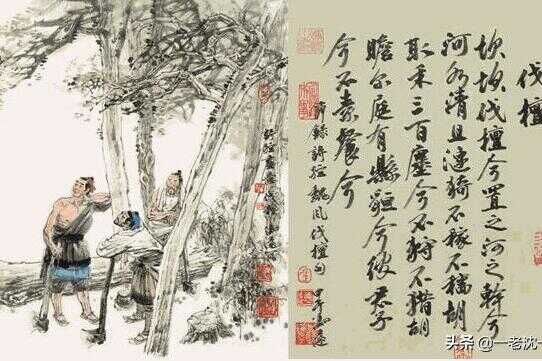 伐檀
坎坎伐檀兮置之河之幹兮
河水清且漣猗不稼不穡胡
取禾三百廛兮不狩不猎胡
瞻尔庭有縣貆兮彼君子
兮不素餐兮
節錄詩經魏風伐檀句
头条 @一老沈一